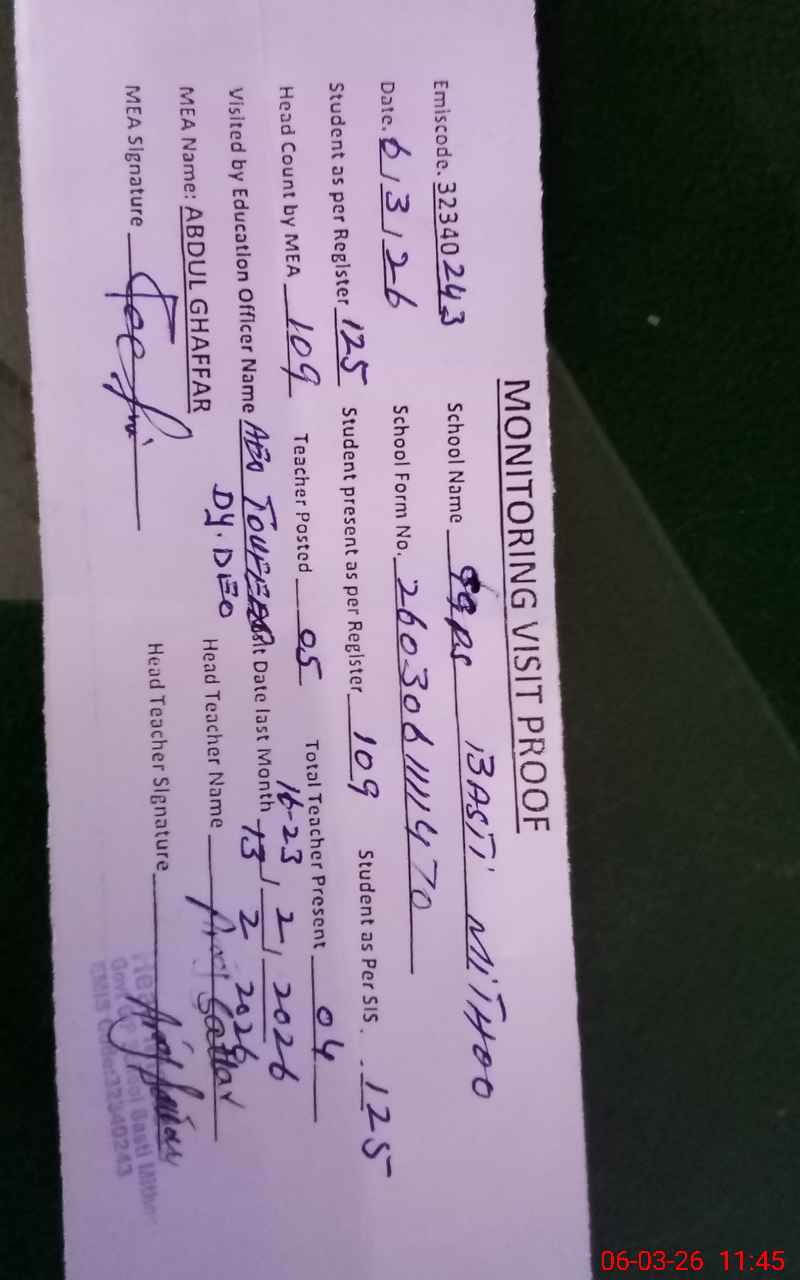 MONITORING VISIT PROOF
Emiscode. 32340243 School Name GGPS BASTI MITHOO
Date. 6/3/26 School Form No. 26030611111470
Student as per Register 125 Student present as per Register 109 Student as Per SIS. 125
Head Count by MEA 109 Teacher Posted 05 Total Teacher Present 04
Visited by Education Officer Name AEO Date last Month 16-23/2/2026
DY.DEO 13 2 2026
MEA Name: ABDUL GHAFFAR Head Teacher Name
MEA Signature Head Teacher Signature
Basti
EMIS 32340243
06-03-26 11:45